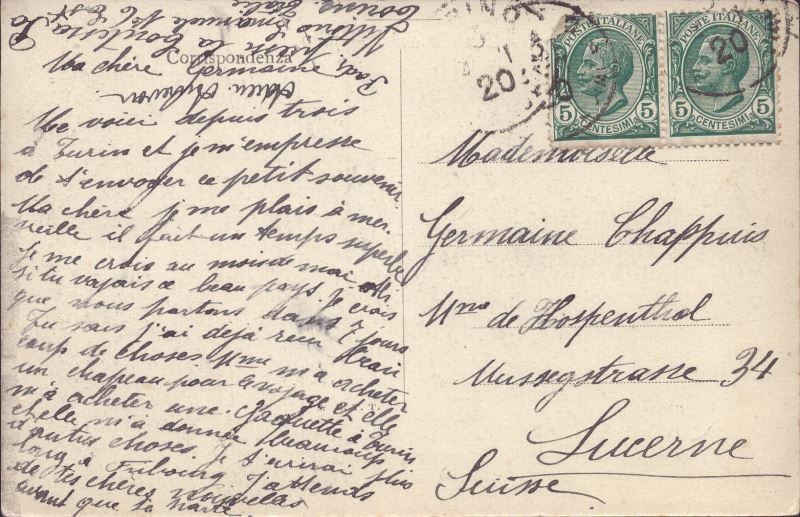 Corrispondenza
Ma chère Germaine
Me voici depuis trois
à Turin et je m'empresse
de t'envoyer ce petit souvenir
Ma chère je me plais à mer-
veille il fait un temps superbe
Je me crois au mois de mai oh!
si tu voyais ce beau pays. Je crois
que nous partons dans 7 jours
Tu sais j'ai déjà reçu beau
coup de choses Mme m'a acheter
un chapeau pour le voyage et elle
m'a acheter une Jaquette à Turin
et elle m'a donner beaucoup
d'autres choses. Je t'écrirai plus
long à Fribourg J'attends
de tes chères nouvelles
avant que
POSTE ITALIANE
5 5
CENTESIMI
POSTE ITALIANE
5 5
CENTESIMI
20
20
Mademoiselle
Germaine Chappuis
Mme de Hospenthal
Mussegstrasse 34
Lucerne
Suisse